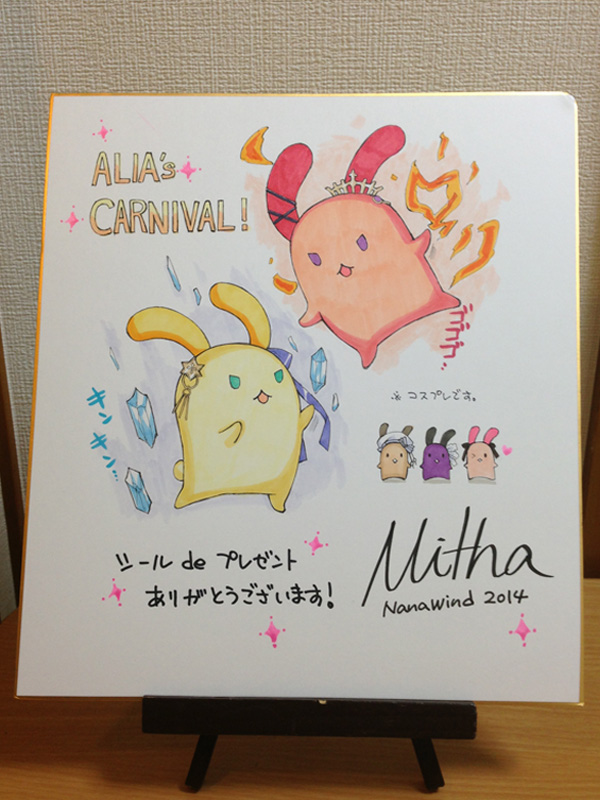 ALIA's
CARNIVAL!
ゴゴゴゴ…
キンキン…
※ コスプレです。
シール de プレゼント
ありがとうございます!
Mitha
Nanawind 2014